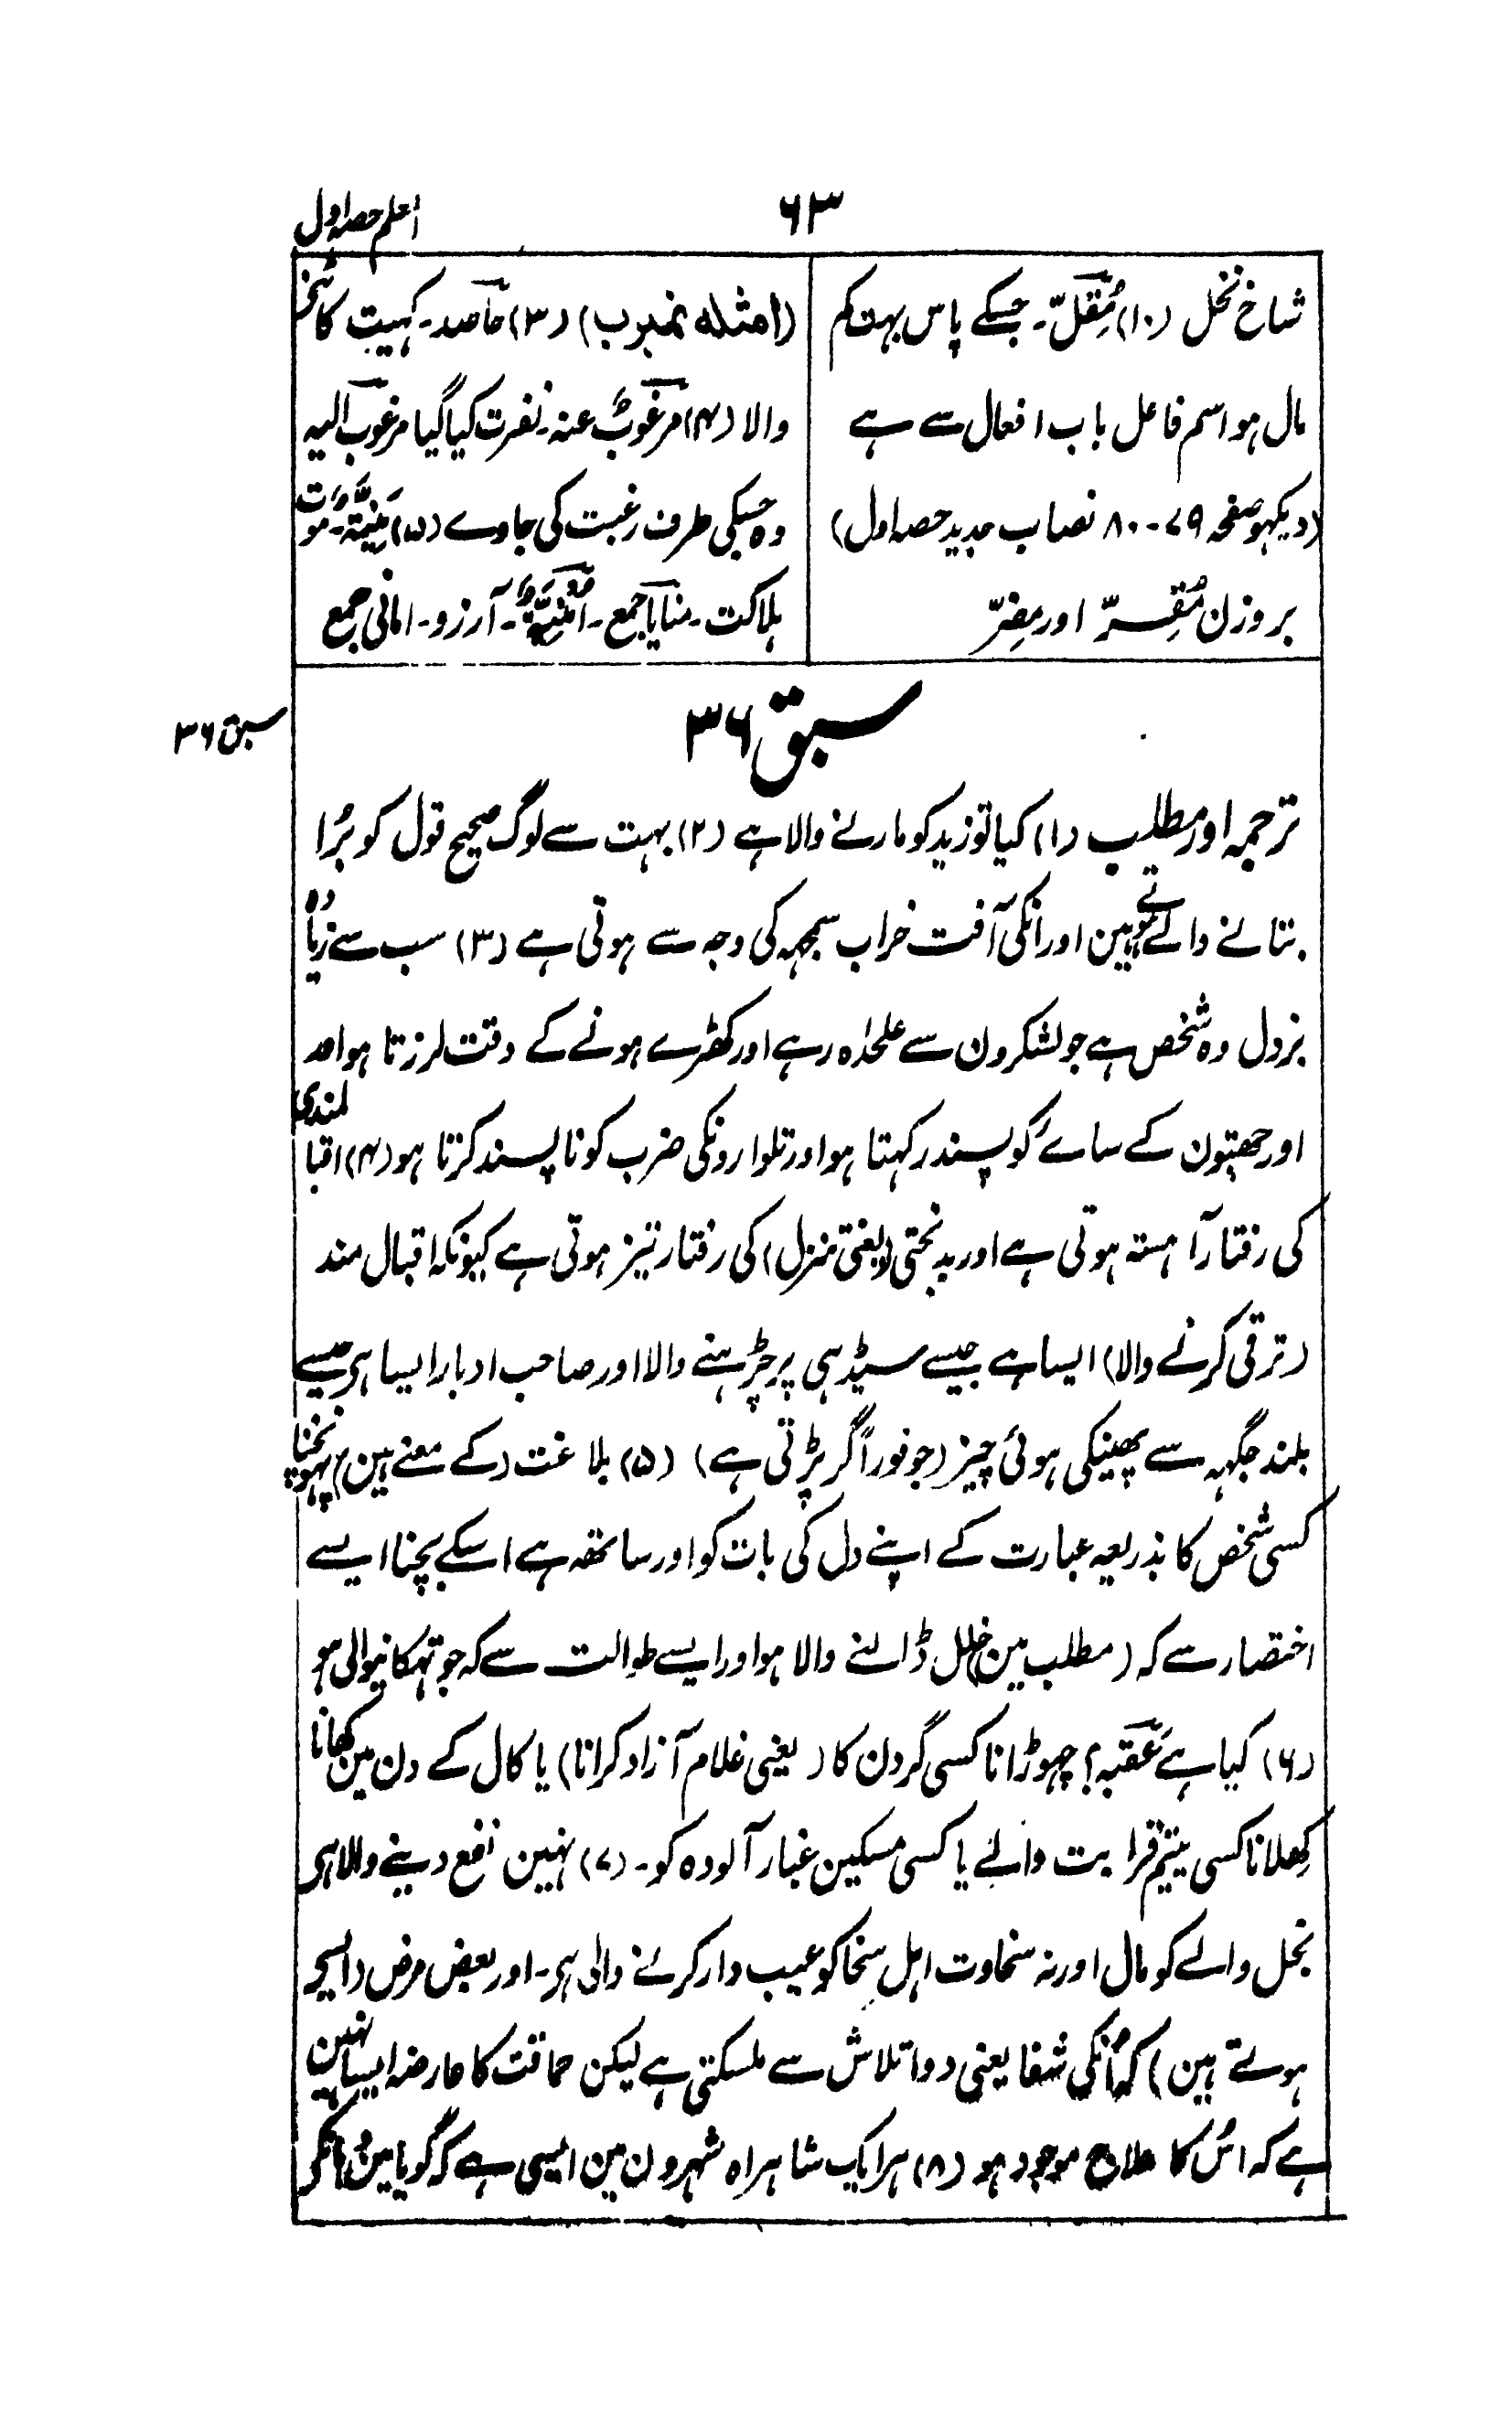 ۶۳
اعلم حصہ اول
شاخ نخل (۱۰) مُقِلّ۔ جسکے پاس بہت کم
مال ہو اسم فاعل باب افعال سے ہے
(دیکہو صفحہ ۷۹-۸۰ نصاب جدید حصہ اول)
بروزن مُقِرّ اور مضِرّ
(امثلہ نمبر ب) (۳) حاصد۔ کہیت کاٹنے
والا (۴) مرغوبٌ عنہ۔ نفرت کیا گیا مرغوب الیہ
وہ جسکی طرف رغبت کی جاوے (۵) مَنِیَّۃٌ۔ موت
ہلاکت۔ منایا جمع۔ اُمْنِیَّۃٌ۔ آرزو۔ امانی جمع
سبق ۳۶
سبق ۳۶
ترجمہ اور مطلب (۱) کیا تو زید کو مارنے والا ہے (۲) بہت سے لوگ صحیح قول کو بُرا
بتانے والے ہوتے ہین اور انکی آفت خراب سمجہہ کی وجہ سے ہوتی ہے (۳) سب سے زیادہ
بزدل وہ شخص ہے جو لشکرون سے علحدٰہ رہے اور کھڑے ہونے کے وقت لرزتا ہو اور
اور چھتون کے سائے کو پسند رکہتا ہو اور تلوارونکی ضرب کو ناپسند کرتا ہو (۴) اقبالمندی
کی رفتار آہستہ ہوتی ہے اور بدبختی (یعنی تنزل) کی رفتار تیز ہوتی ہے کیونکہ اقبال مند
(ترقی کرنے والا) ایسا ہے جیسے سیڈہی پر چڑہنے والا اور صاحب ادبار ایسا ہی جیسے
بلند جگہہ سے پھینکی ہوئی چیز (جو فوراً گر پڑتی ہے) (۵) بلاغت (کے معنے ہین) پہونچنا
کسی شخص کا بذریعہ عبارت کے اپنے دل کی بات کو اور ساتھہ ہے اسکے بچنا ایسے
اختصار سے کہ (مطلب مین) خلل ڈالنے والا ہو اور ایسے طوالت سے کہ جو تہکانیوالی ہو
(۶) کیا ہے عَقَبہ؟ چہوڑانا کسی گردن کا (یعنی غلام آزاد کرانا) یا کال کے دن مین کھانا
کھلانا کسی یتیم قرابت والے یا کسی مسکین غبار آلودہ کو۔ (۷) نہین نفع دینے والا ہی
بخل والے کو مال اور نہ سخاوت اہل سخا کو عیب دار کرنے والی ہی۔ اور بعض مرض (ایسے
ہوتے ہین) کہ اُنکی شفا یعنی دوا تلاش سے ملسکتی ہے لیکن حماقت کا عارضہ ایسا نہین
ہے کہ اُس کا علاج موجود ہو (۸) ہر ایک شاہراہ شہرون مین ایسی ہے کہ گویا مین